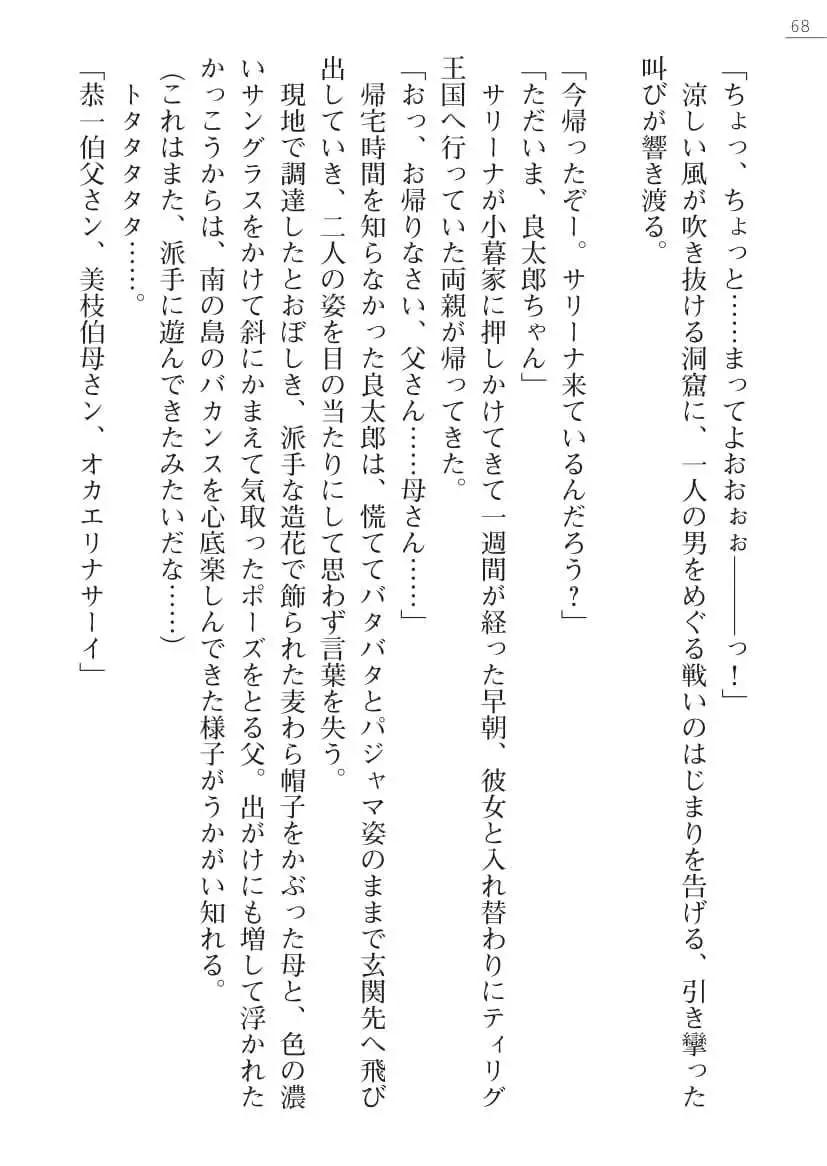 68
「ちょっ、ちょっと……まってよおおぉぉ――――っ！」
　涼しい風が吹き抜ける洞窟に、一人の男をめぐる戦いのはじまりを告げる、引き攣った
叫びが響き渡る。
「今帰ったぞー。サリーナ来ているんだろう？」
「ただいま、良太郎ちゃん」
　サリーナが小暮家に押しかけてきて一週間が経った早朝、彼女と入れ替わりにティリグ
王国へ行っていた両親が帰ってきた。
「おっ、お帰りなさい、父さん……母さん……」
　帰宅時間を知らなかった良太郎は、慌ててバタバタとパジャマ姿のままで玄関先へ飛び
出していき、二人の姿を目の当たりにして思わず言葉を失う。
　現地で調達したとおぼしき、派手な造花で飾られた麦わら帽子をかぶった母と、色の濃
いサングラスをかけて斜にかまえて気取ったポーズをとる父。出がけにも増して浮かれた
かっこうからは、南の島のバカンスを心底楽しんできた様子がうかがい知れる。
（これはまた、派手に遊んできたみたいだな……）
　トタタタタタ……。
「恭一伯父さン、美枝伯母さン、オカエリナサーイ」